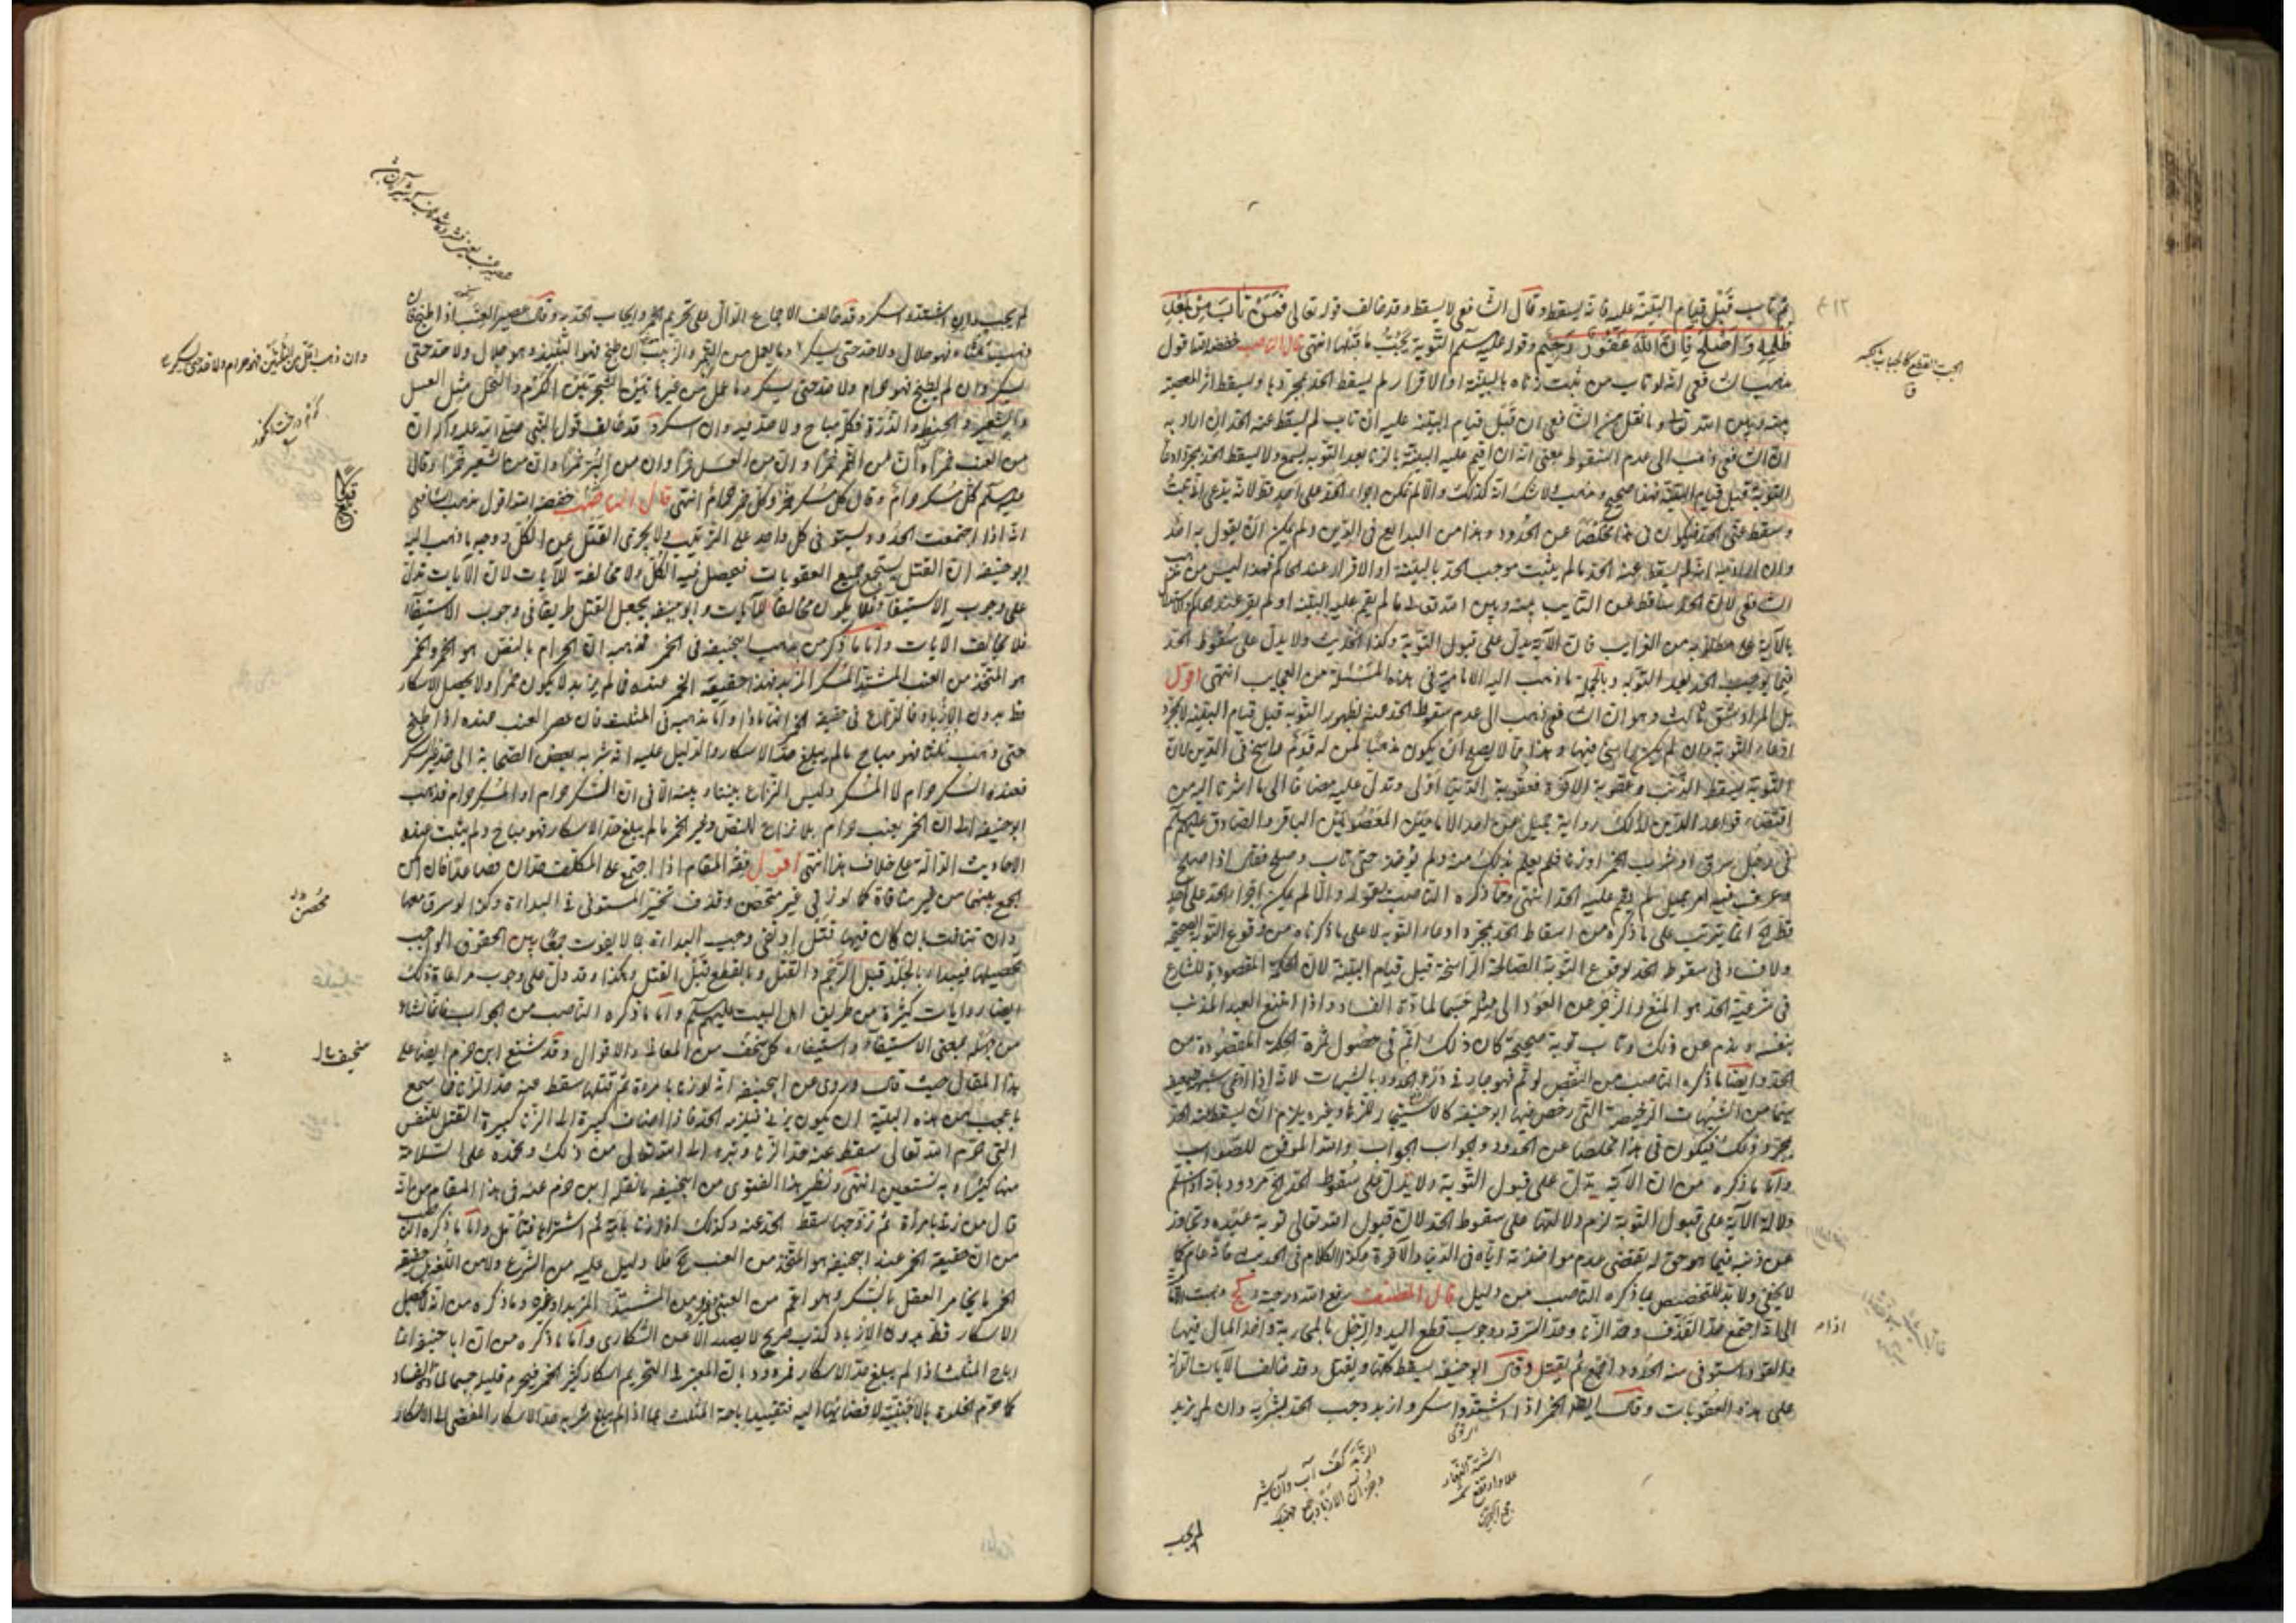 ثم تاب قبل قيام البيّنة عليه فانه يسقط وقال الشافعي لا يسقط وقد خالف قوله تعالى فمن تاب من بعد
ظلمه واصلح فان الله غفور رحيم وقوله عليه السلم التوبة يجبّ ما قبلها انتهى قال الناصب خفضه الله اقول
مذهب الشافعي انه لو تاب من ثبت زناه بالبينة او الاقرار لم يسقط الحد بمجردها ويسقط اثر المعصية
بينه وبين الله تعالى وما نقل عن الشافعي ان قبل قيام البينة عليه ان تاب لم يسقط عنه الحد ان اراد به
ان الشافعي ذاهب الى عدم السقوط بمعنى انه ان اقيم عليه البينة بالزنا بعد التوبة يسمع ولا يسقط الحد بمجرد ادعاء
التوبة قبل قيام البينة فهذا صحيح ومذهبه لا شك انه كذلك والا لم يمكن اجراء الحد على احد قط لانه يدعي اني تبت
وسقط عني الحد فيكون في هذا مخلصا عن الحدود وهذا من البدايع في الدين ولم يمكن ان يقول به احد
وان اراد به انه لم يسقط عنه الحد ما لم يثبت موجب الحد بالبينة او الاقرار عند الحاكم فهذا ليس من مذهب
الشافعي لان الحد ساقط عن التايب بينه وبين الله تعالى ما لم يقم عليه البينة او لم يقر عند الحاكم والاستدلال
بالآية على مطلوبه من الغرايب فان الآية يدل على قبول التوبة وكذا الحديث ولا يدل على سقوط الحد
فيما يوجب الحد بعد التوبة وبالجملة ما ذهب اليه الامامية في هذه المسئلة من العجايب انتهى اقول
بل المراد شق ثالث وهو ان الشافعي ذهب الى عدم سقوط الحد عنه بظهور التوبة قبل قيام البينة لا بمجرد
ادعاء التوبة وان لم يكن راسخ فيها وهذا مما لا يصلح ان يكون مذهبا لمن له قدم راسخ في الدين لان
التوبة يسقط الذنب وعقوبة الآخرة فعقوبة الدنيا اولى وتدل عليه مضافا الى ما اشرنا اليه من
اقتضاء قواعد الدين لذلك رواية جميل عن احد الامامين المعصومين الباقر والصادق عليهما السلم
في رجل سرق او شرب الخمر او زنا فلم يعلم بذلك منه ولم يؤخذ حتى تاب وصلح فقال اذا صلح
وعرف منه امر جميل لم يقم عليه الحد انتهى وما ذكره الناصب بقوله والا لم يمكن اجراء الحد على احد
قط الخ انما يترتب على ما ذكره من اسقاط الحد بمجرد ادعاء التوبة لا على ما ذكرناه من وقوع التوبة الصحيحة
ولا فساد في سقوط الحد لوقوع التوبة الصالحة الراسخة قبل قيام البينة لان الحكمة المقصودة للشارع
في شرعية الحد هو المنع والزجر عن العود الى مثله حسما لمادة الفساد واذا امتنع العبد المذنب
بنفسه وندم عن ذلك وتاب توبة صحيحة كان ذلك اتم في حصول ثمرة الحكمة المقصودة من
الحد وايضا ما ذكره الناصب من النقض لو تم فهو جار في درء الحدود بالشبهات لانه اذا ادعى شبهة
من الشبهات المرخصة التي رخص فيها ابو حنيفة كالاستيجار للزنا وغيره يلزم ان يسقط عنه الحد
بمجرد ذلك فيكون في هذا مخلصا عن الحدود والجواب الجواب والله الموفق للصواب
واما ما ذكره من ان الآية يدل على قبول التوبة ولا يدل على سقوط الحد الخ مردود بانه اذا سلم
دلالة الآية على قبول التوبة لزم دلالتها على سقوط الحد لان قبول الله تعالى توبة عبده وتجاوز
عن ذنبه فيما هو حق له يقتضي عدم مؤاخذته اياه في الدنيا والآخرة وكذا الكلام في الحديث فانه عام كما
لا يخفى ولا بد للتخصيص بما ذكره الناصب من دليل قال المصنف رفع الله درجته كج ذهبت الامامية
الى انه اذا اجتمع حد القذف وحد الزنا وحد السرقة ووجوب قطع اليد والرجل بالمحاربة واخذ المال فيها
والقود استوفى منه الحدود اجمع ثم يقتل وقال ابو حنيفة يسقط كلها ويقتل وقد خالف الآيات الدالة
على هذه العقوبات وقال ايضا الخمر اذا اشتد واسكر وازبد وجب الحد بشربه وان لم يزبد
لم يجب
لم يجب وان اشتد واسكر وقد خالف الاجماع الدال على تحريم الخمر وايجاب الحد به وقال عصير العنب اذا طبخ فان
ذهب ثلثاه فهو حلال ولا حد حتى يسكر وما يعمل من التمر والزبيب ان طبخ فهو النبيذ وهو حلال ولا حد حتى
يسكر وان لم يطبخ فهو حرام ولا حد حتى يسكر وما عمل من غير هاتين الشجرتين الكرم والنخل مثل العسل
والشعير والحنطة والذرة فكله مباح ولا حد فيه وان اسكر وقد خالف قول النبي صلى الله عليه وآله ان
من العنب خمرا وان من التمر خمرا وان من العسل خمرا وان من البر خمرا وان من الشعير خمرا وقال
عليه السلم كل مسكر حرام وقال كل مسكر خمر وكل خمر حرام انتهى قال الناصب خفضه الله اقول مذهب الشافعي
انه اذا اجتمعت الحدود يستوفى كل واحد على الترتيب ولا يجزى القتل عن الكل ووجه ما ذهب اليه
ابو حنيفة ان القتل يستجمع جميع العقوبات فيحصل فيه الكل ولا مخالفة للآيات لان الآيات تدل
على وجوب الاستيفاء فلا يكون مخالفا للآيات وابو حنيفة يجعل القتل طريقا في وجوب الاستيفاء
فلا يخالف الآيات واما ما ذكر من مذهب ابيحنيفة في الخمر فمذهبه ان الحرام بالنص هو الخمر والخمر
هو المتخذ من العنب المشتد المسكر المزبد فهذا حقيقة الخمر عنده فما لم يزبد لا يكون خمرا ولا يحصل الاسكار
قط بدون الازباد فالنزاع في حقيقة الخمر ماذا واما مذهبه في المثلث فان عصير العنب عنده اذا طبخ
حتى ذهب ثلثاه فهو مباح ما لم يبلغ حد الاسكار والدليل عليه انه شربه بعض الصحابة الى حد يظهر السكر
فعنده السكر حرام لا المسكر وليس النزاع بيننا وبينه الا في ان السكر حرام او المسكر حرام فذهب
ابو حنيفة الى ان الخمر بعينه حرام بلا نزاع للنص وغير الخمر ما لم يبلغ حد الاسكار فهو مباح ولم يثبت عنده
الاحاديث الدالة على خلاف هذا انتهى اقول فقه المقام اذا اجتمع على المكلف حدان فصاعدا فان امكن
الجمع بينهما من غير منافاة كما لو زنى غير محصن وقذف تخير المستوفي في البداءة وكذا لو سرق معهما
وان تنافت بان كان فيها قتل او نفي وجب البداءة بما لا يفوت جمعا بين الحقوق الواجب
تحصيلها فيبدأ بالجلد قبل الرجم والقتل وبالقطع قبل القتل وهكذا وقد دل على وجوب مراعاة ذلك
ايضا روايات كثيرة من طريق اهل البيت عليهم السلم واما ما ذكره الناصب من الجواب فانما نشأ
من جهله بمعنى الاستيفاء واستيفاءه كل سخف من المعاني والاقوال وقد شنع ابن حزم ايضا على
هذا المقال حيث قال وروي عن ابيحنيفة انه لو زنا بامرأة ثم قتلها سقط عنه حد الزنا فما سمع
باعجب من هذه البلية ان يكون يزني فيلزمه الحد فاذا اضاف كبيرة الى الزنا كبيرة القتل للنفس
التي حرم الله تعالى سقط عنه حد الزنا ونبرء الى الله تعالى من ذلك ونحمده على السلامة
منها كثيرا وبه نستعين انتهى ونظير هذا الفتوى من ابيحنيفة ما نقله ابن حزم عنه في هذا المقام من انه
قال من زنا بامرأة ثم تزوجها سقط الحد عنه وكذلك اذا زنا بامة ثم اشتراها فتأمل واما ما ذكره الناصب
من ان حقيقة الخمر عند ابيحنيفة هو المتخذ من العنب الخ فلا دليل عليه من الشرع ولا من اللغة بل حقيقة
الخمر ما يخامر العقل بالسكر وهو اعم من العنبي ومن المشتد المزبد وغيره وما ذكره من انه لا يحصل
الاسكار قط بدون الازباد كذب صريح لا يصدر الا عن السكارى واما ما ذكره من ان ابا حنيفة انما
اباح المثلث اذا لم يبلغ حد الاسكار فمردود بان المعتبر في التحريم اسكار كثير الخمر فيحرم قليله حسما لمادة الفساد
كما حرم الخلوة بالاجنبية لافضائها اليه فتقييد اباحة المثلث بما اذا لم يبلغ شربه حد الاسكار المفضي الى الاسكار
وان ذهب اقل من الثلثين فهو حرام ولا حد حتى يسكر
محصن
اذا